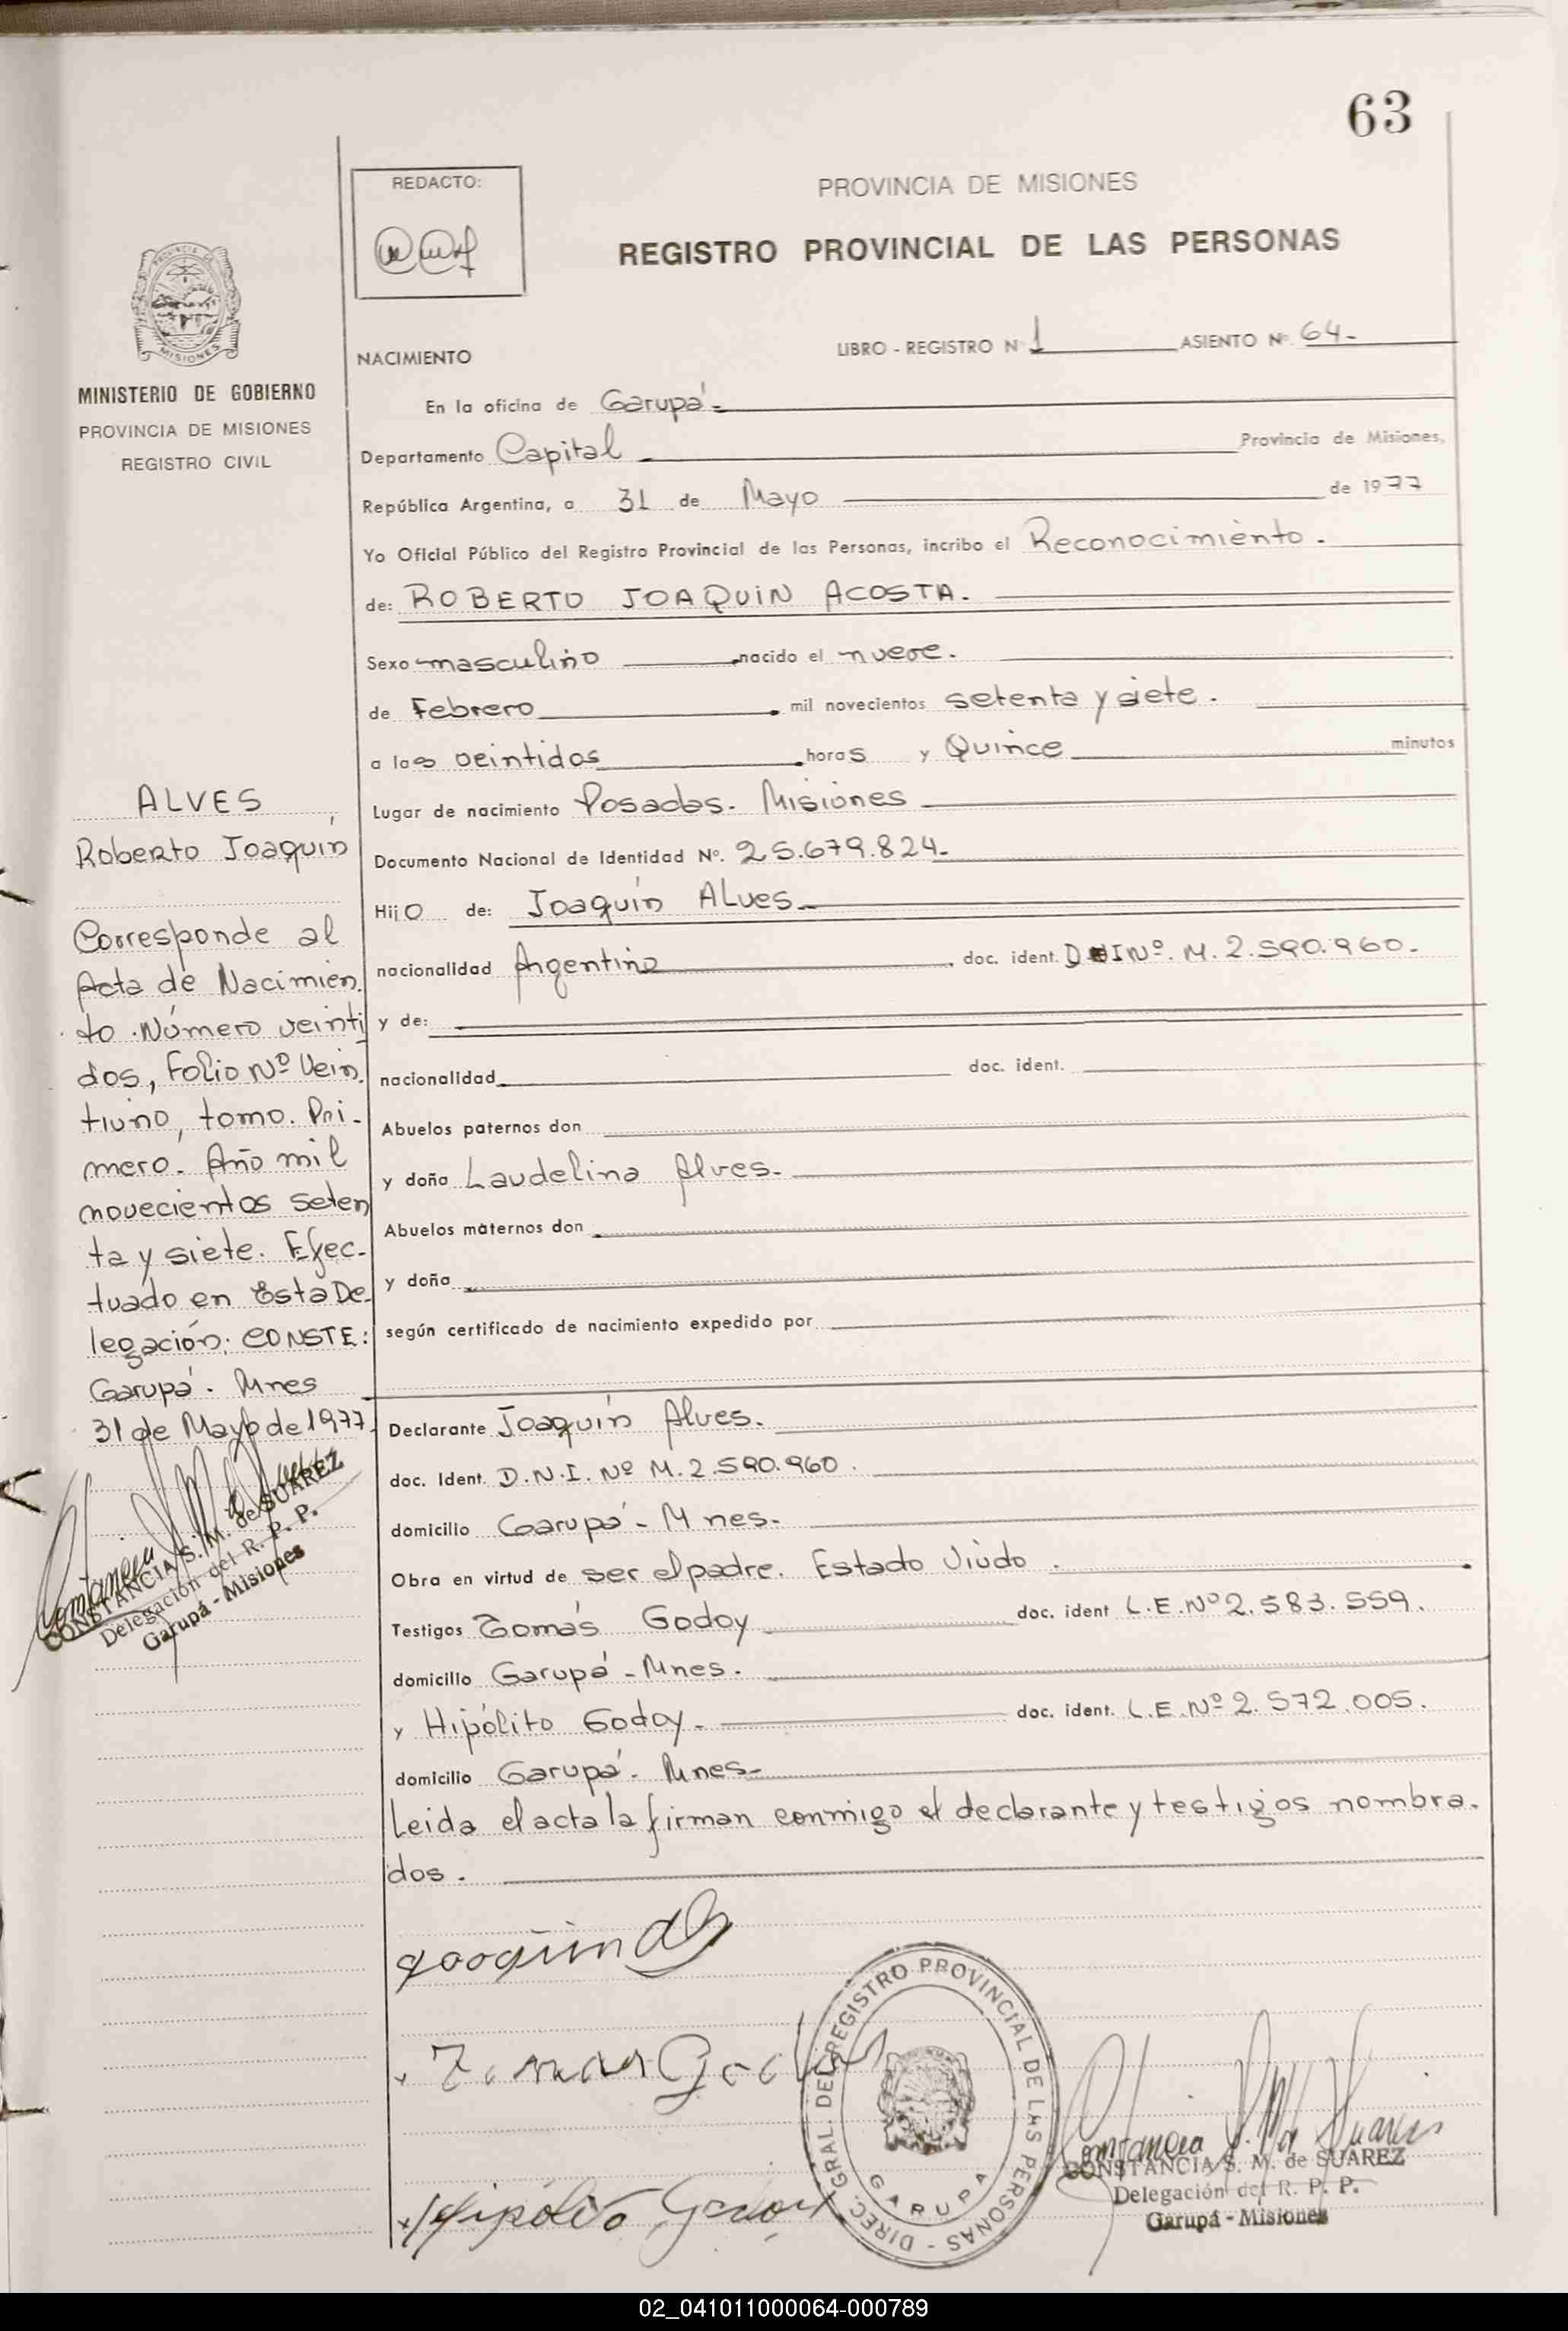 63
REDACTO:
PROVINCIA DE MISIONES
REGISTRO PROVINCIAL DE LAS PERSONAS
PROVINCIA DE
MISIONES
MINISTERIO DE GOBIERNO
PROVINCIA DE MISIONES
REGISTRO CIVIL
NACIMIENTO
LIBRO - REGISTRO Nº 1 ASIENTO Nº 64-
En la oficina de Garupá-
Departamento Capital Provincia de Misiones,
República Argentina, a 31 de Mayo de 1977
Yo Oficial Público del Registro Provincial de las Personas, incribo el Reconocimiento.
de: ROBERTO JOAQUIN ACOSTA.
Sexo masculino nacido el nueve.
de Febrero mil novecientos setenta y siete.
a las veintidos horas y Quince minutos
Lugar de nacimiento Posadas. Misiones
Documento Nacional de Identidad Nº. 25.679.824-
Hijo de: Joaquín Alves-
nacionalidad Argentino doc. ident. DNI Nº. M. 2.590.960-
y de:
nacionalidad doc. ident.
Abuelos paternos don
y doña Laudelina Alves-
Abuelos maternos don
y doña
según certificado de nacimiento expedido por
Declarante Joaquín Alves.
doc. Ident. D.N.I. Nº M. 2.590.960.
domicilio Garupá - Mnes-
Obra en virtud de ser el padre. Estado Viudo.
Testigos Tomás Godoy doc. ident L.E. Nº 2.583.559.
domicilio Garupá - Mnes.
y Hipólito Godoy- doc. ident. L.E. Nº 2.572.005.
domicilio Garupá. Mnes-
Leida el acta la firman conmigo el declarante y testigos nombra-
dos.
ALVES
Roberto Joaquín
Corresponde al
Acta de Nacimien
to. Número veinti
dos, Folio Nº Vein
tiuno, tomo. Pri-
mero. Año mil
novecientos seten
ta y siete. Efec-
tuado en Esta De-
legación: CONSTE:
Garupá. Mnes
31 de Mayo de 1977.
CONSTANCIA S. M. de SUAREZ
Delegación del R. P. P.
Garupá - Misiones
Joaquin
Tomas Godoy
Hipólito Godoy
DIREC. GRAL. DEL REGISTRO PROVINCIAL DE LAS PERSONAS -
GARUPA
Constancia S. M. de Suarez
CONSTANCIA S. M. de SUAREZ
Delegación del R. P. P.
Garupá - Misiones
02_041011000064-000789